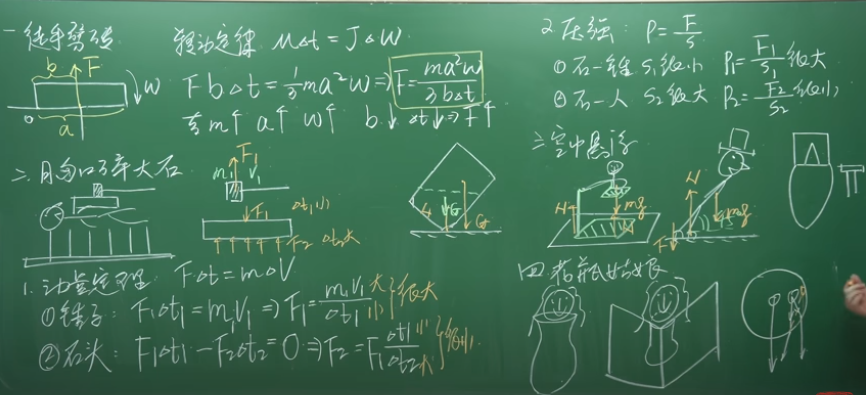 一 徒手劈砖
转动定律 M△t = J△W
b F
W
o
a
Fb△t = 1/3 ma²w ⇒ F = ma²w / 3b△t
m↑ a↑ w↑ b↓ △t↓ ⇒ F↑
二、胸口碎大石
m₁ F₁ V₁
F₁ △t₁小
F₂ △t₂大
G
1. 动量定理 F△t = m△V
①锤子: F₁△t₁ = m₁V₁ ⇒ F₁ = m₁V₁大 / △t₁小 } 很大
②石头: F₁△t₁ - F₂△t₂ = 0 ⇒ F₂ = F₁ △t₁小 / △t₂大 } 很小
2. 压强: P = F/S
①石一锤 S₁很小 P₁ = F₁/S₁ 很大
②石一人 S₂很大 P₂ = F₂/S₂ 很小
三、空中悬浮
N mg
N mg
F
四 花瓶姑娘